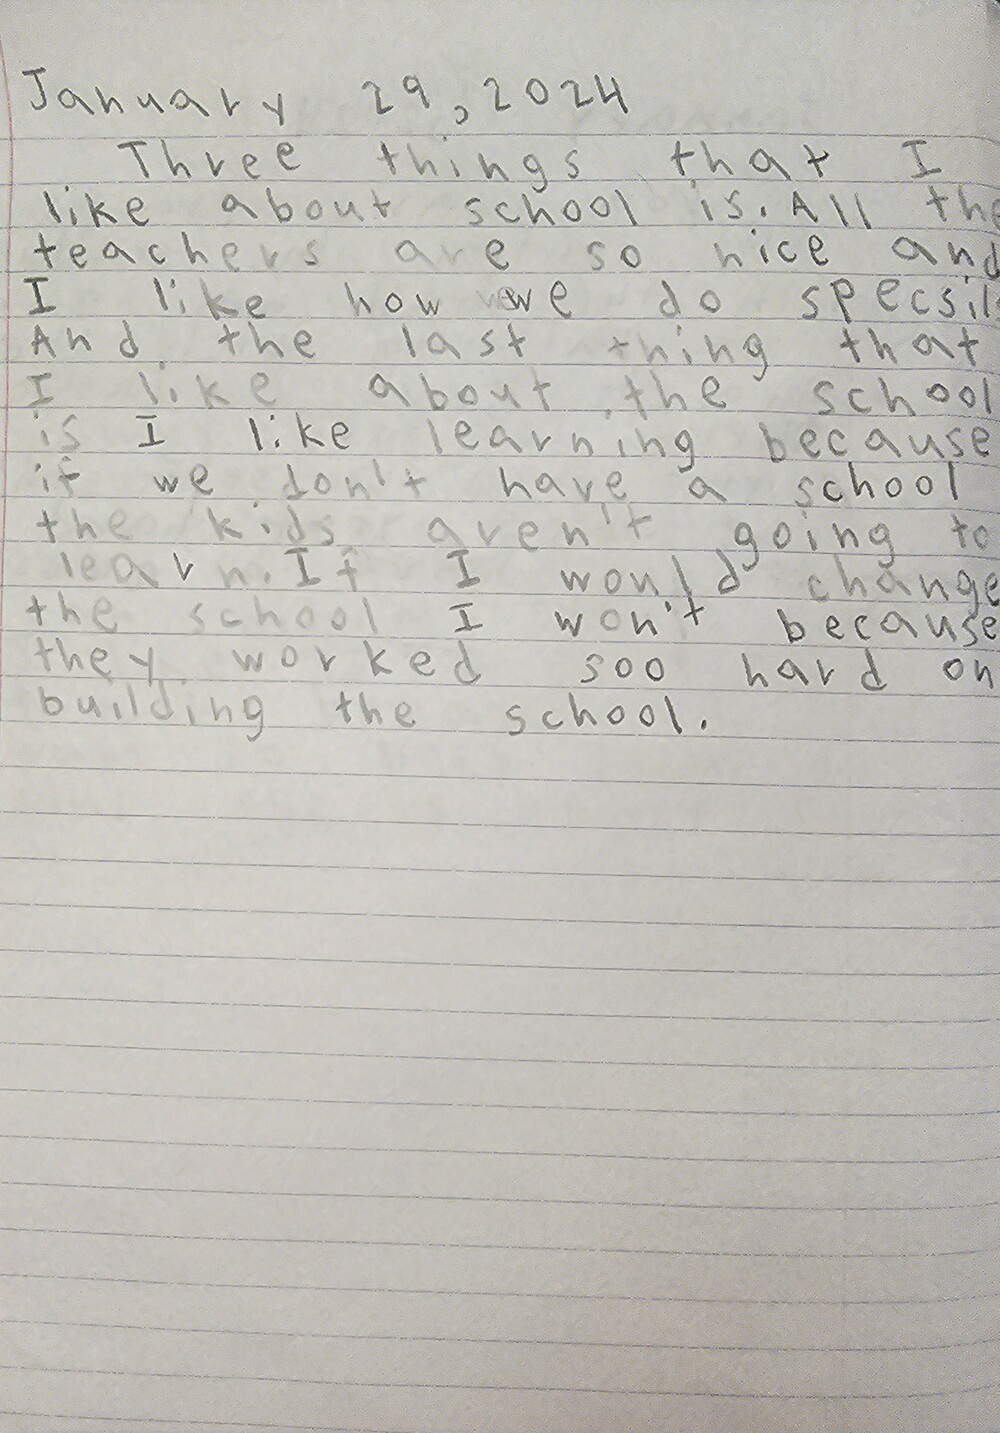 January 29, 2024
Three things that I
like about school is. All the
teachers are so nice and
I like how we do specsil
And the last thing that
I like about the school
is I like learning because
if we don't have a school
the kids aren't going to
learn. If I would change
the school I won't because
they worked soo hard on
building the school.